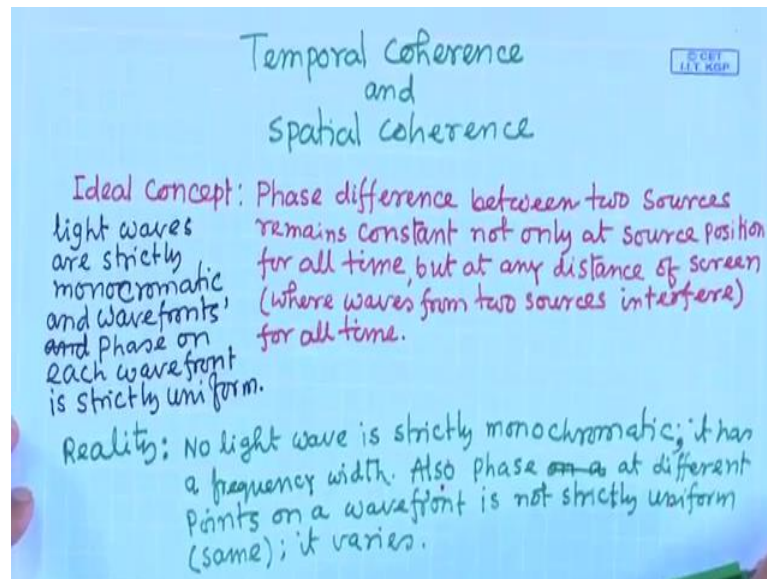 Temporal Coherence
and
Spatial Coherence
© CET
I.I.T. KGP
Ideal Concept: Phase difference between two Sources
remains constant not only at source position
for all time, but at any distance of screen
(where waves from two sources interfere)
for all time.
light waves
are strictly
monocromatic
and wavefronts'
and phase on
each wavefront
is strictly uniform.
Reality: No light wave is strictly monochromatic; it has
a frequency width. Also phase on a at different
points on a wavefront is not strictly uniform
(same); it varies.